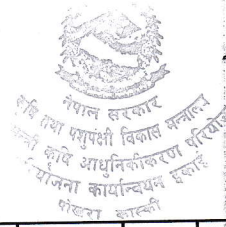 नेपाल सरकार
कृषि तथा पशुपंक्षी विकास मन्त्रालय
कृषि आधुनिकीकरण परियोजना
कार्यान्वयन इकाई
पोखरा कास्की